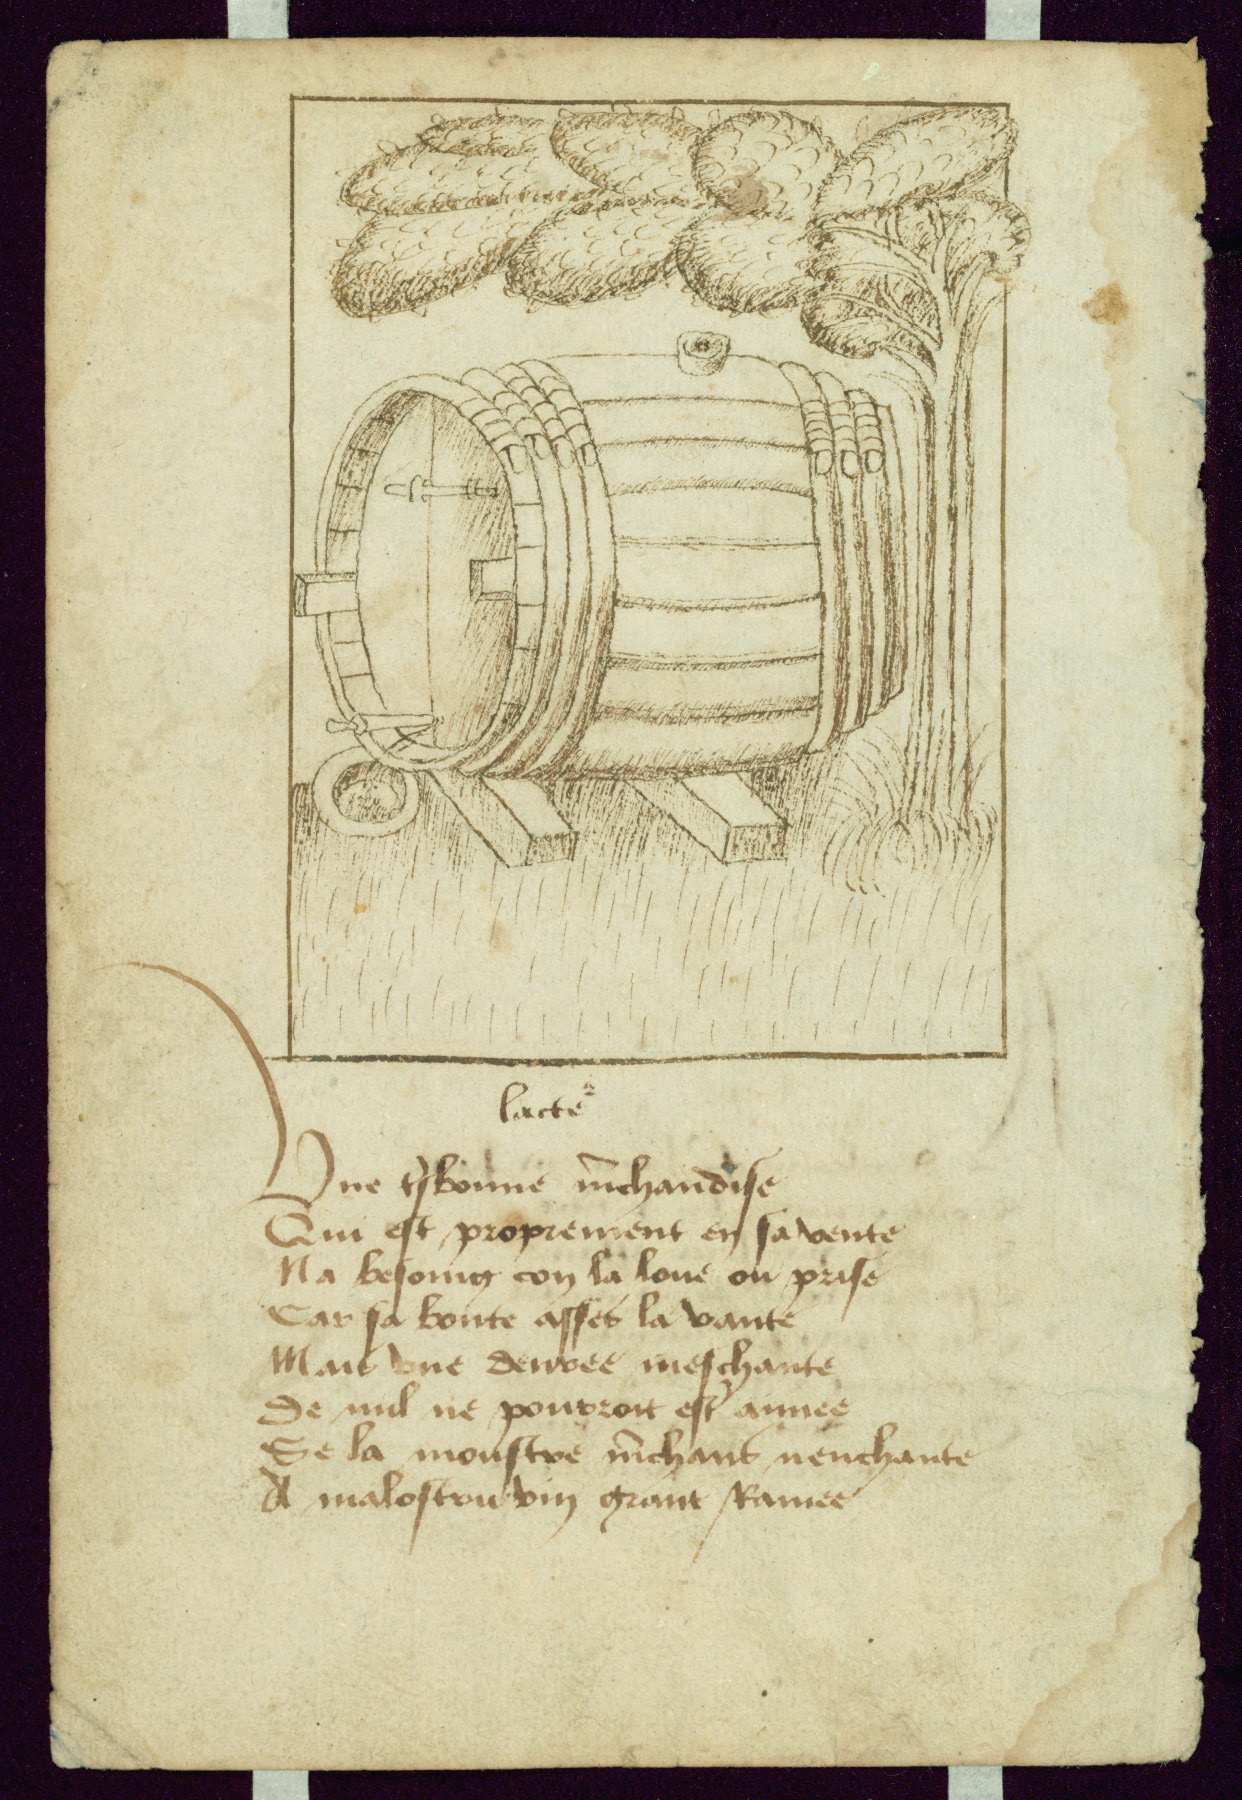 lacte²
Une tʼsbonne m̄chandise
Qui est proprement en sa vente
Na besoing con la loue ou prise
Car sa bonte asses la vante
Mais vne denree meschante
De nul ne pouvroit estʼ aimee
Se la monstre m̄chant nenchante
A malostru vin grant Ramee